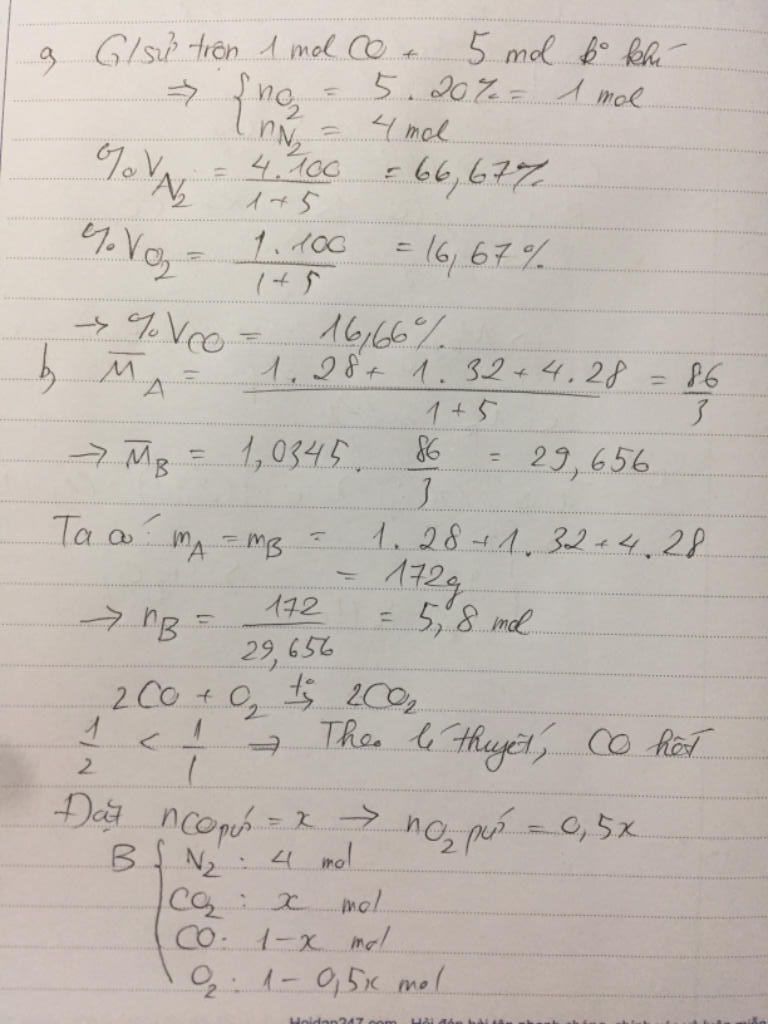 a, G/sử trộn 1 mol CO + 5 mol k° khí
⇒ { nO₂ = 5 . 20% = 1 mol
nN₂ = 4 mol
%V_N₂ = 4.100 / 1+5 = 66,67%
%V_O₂ = 1.100 / 1+5 = 16,67%
→ %V_CO = 16,66%
b, M̅_A = 1.28 + 1.32 + 4.28 / 1+5 = 86/3
→ M̅_B = 1,0345. 86/3 = 29,656
Ta có: m_A = m_B = 1.28 + 1.32 + 4.28
= 172g
→ n_B = 172 / 29,656 = 5,8 mol
2CO + O₂ t°→ 2CO₂
1/2 < 1/1 ⇒ Theo lí thuyết, CO hết
Đặt nCO pứ = x → nO₂ pứ = 0,5x
B { N₂ : 4 mol
CO₂ : x mol
CO: 1-x mol
O₂ : 1 - 0,5x mol